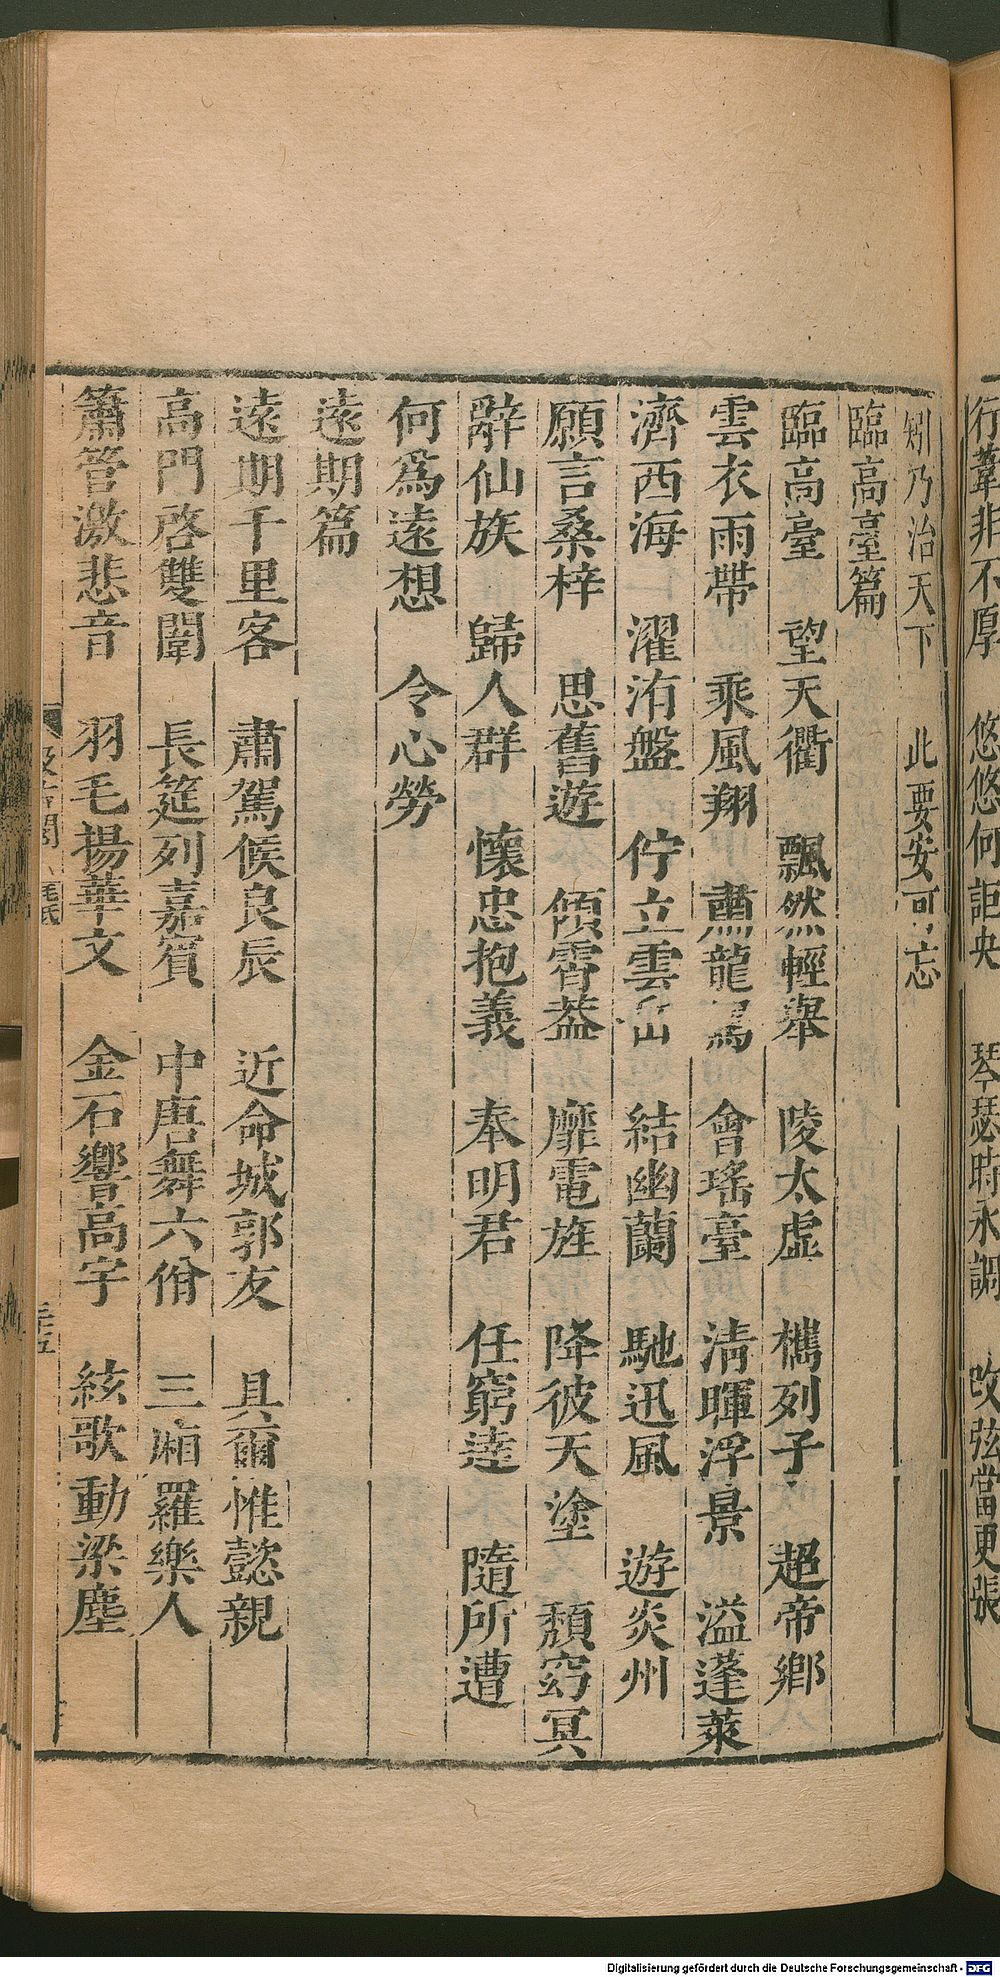 行葦非不厚　悠悠何詎央　琴瑟時永調　改弦當更張
矧乃治天下　此要安可忘
臨高臺篇
臨高臺　望天衢　飄然輕舉　陵太虛　檇列子　超帝鄉
雲衣雨帶　乘風翔　肅龍駕　會瑤臺　清暉浮景　溢蓬萊
濟西海　濯洧盤　佇立雲岳　結幽蘭　馳迅風　遊炎州
願言桑梓　思舊遊　傾霄葢　靡電旌　降彼天塗　頹窈冥
辭仙族　歸人群　懷忠抱義　奉明君　任窮達　隨所遭
何爲遠想　令心勞
遠期篇
遠期千里客　肅駕候良辰　近命城郭友　具爾惟懿親
高門啓雙闈　長筵列嘉賓　中唐舞六佾　三廂羅樂人
簫管激悲音　羽毛揚華文　金石響高宇　絃歌動梁塵
汲古閣　毛氏
三五
Digitalisierung gefördert durch die Deutsche Forschungsgemeinschaft - DFG